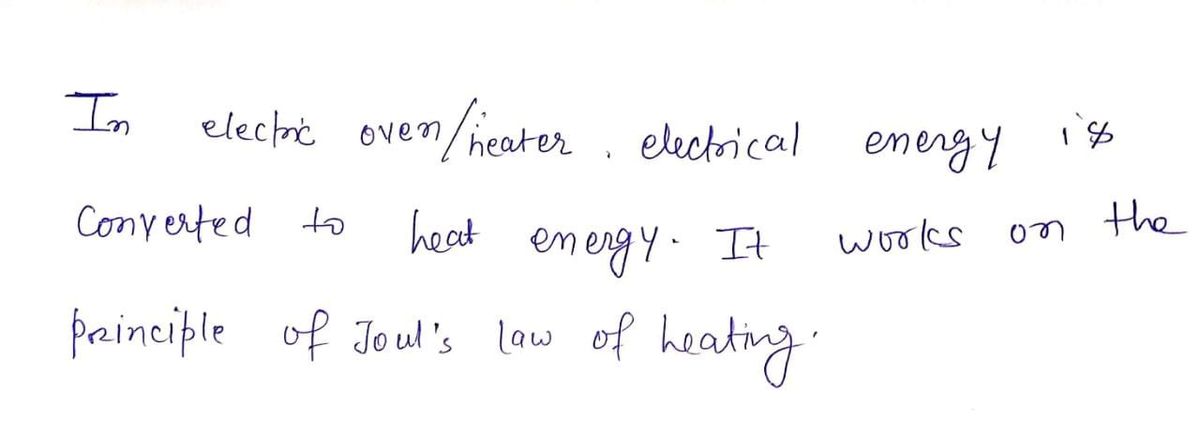 In electric oven/heater, electrical energy is
Converted to heat energy. It works on the
principle of Joul's law of heating.